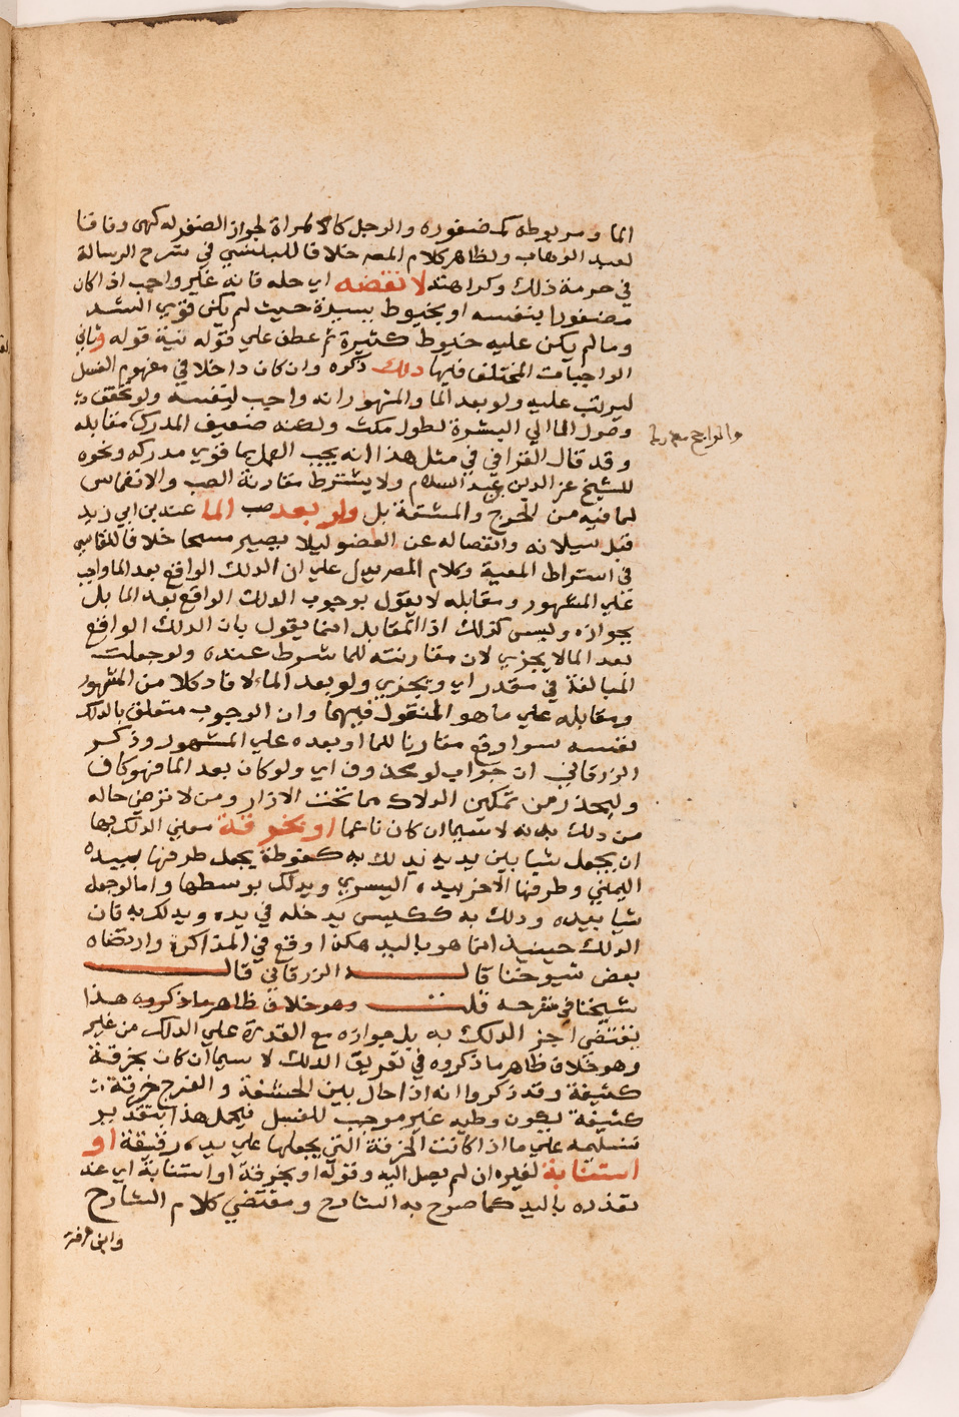 الما ومربوطه كمضفوره والرجل كالامراة لجواز الضفر له كهى وفاقا
لعبد الوهاب ولظاهر كلام المصـ خلافا للبلنسي في شرح الرسالة
في حرمة ذلك وكراهته لا نقضه اي حله فانه غير واجب اذا كان
مضفورا بنفسه او بخيوط يسيرة حيث لم يكن قوي الشد
وما لم يكن عليه خيوط كثيرة ثم عطف علي قوله نية قوله وثاني
الواجبات المختلف فيها دلك ذكره وان كان داخلا في مفهوم الغسل
ليرتب عليه ولو بعد الما والمشهور انه واجب لنفسه ولو تحقق
وصول الما الي البشرة لطول مكث ولكنه ضعيف المدرك مقابله
والراجح
وقد قال القرافي في مثل هذا انه يجب العمل بما قوي مدركه ونحوه
للشيخ عز الدين بن عبد السلام ولا يشترط مقارنة الصب والانغماس
لما فيه من الحرج والمشقة بل ولو بعد صب الما عند بن ابي زيد
قبل سيلانه وانفصاله عن العضو ليلا يصير مسحا خلافا للقابسي
في اشتراط المعية وكلام المصـ يدل علي ان الدلك الواقع بعد الما واجب
علي المشهور ومقابله لا يقول بوجوب الدلك الواقع بعد الما بل
بجوازه وليس كذلك اذ المقابل انما يقول بان الدلك الواقع
بعد الما لا يجزي لان مقارنته للما شرط عنده ولو جعلت
المبالغة في مقدر اي ويجزي ولو بعد الماء لافاد كلا من المشهور
ومقابله علي ما هو المنقول فيهما وان الوجوب متعلق بالدلك
نفسه سوا وقع مقارنا للما او بعده علي المشهور وذكر
الزرقاني ان جواب لو محذوف اي ولو كان بعد الما فهو كاف
وليحذر من تمكين الدلاك مما تحت الازار ومن لا ترضي حاله
من دلك بدنه لا سيما ان كان ناعما او بخرقة معني الدلك بها
ان يجعل شيا بين يديه يدلك به كفوطة يجعل طرفها بيده
اليمني وطرفها الاخر بيده اليسري ويدلك بوسطها واما لو جعل
شيا بيده ودلك به ككيس يدخله في يده ويدلك به فان
الدلك حينيذ انما هو باليد هكذا وقع في المذاكرة وارتضاه
بعض شيوخنا قاله الزرقاني قال
شيخنا في شرحه قلت وهو خلاف ظاهر ما ذكروه هذا
يقتضي اجز الدلك به بل جوازه مع القدرة علي الدلك من غير
وهو خلاف ظاهر ما ذكروه في تعريف الدلك لا سيما ان كان بخرقة
كثيفة وقد ذكروا انه اذا حال بين الحشفة والفرج خرقة
كثيفة يكون وطيه غير موجب للغسل فيحمل هذا بتقدير
تسليمه علي ما اذا كانت الخرقة التي يجعلها علي يده رقيقة او
استنابة لغيره ان لم يصل اليه وقوله او بخرقة او استنابة اي عند
تعذره باليد كما صرح به الشارح ومقتضي كلام الشارح
وابن عرفة